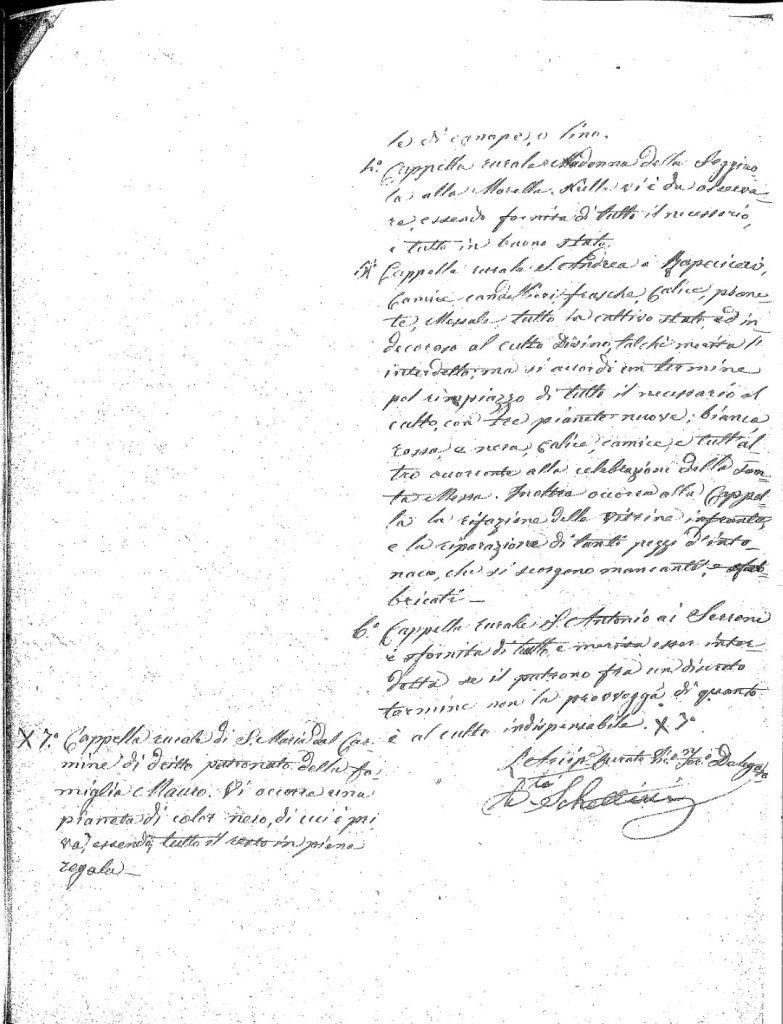 le di canape, o lino.
4.° Cappella rurale Madonna della Seggiuo-
la alla Morella. Nulla vi è da osserva-
re, essendo fornita di tutto il necessario,
e tutto in buono stato.
5.° Cappella rurale S. Andrea a
Camice candellieri, frasche, Calice, piane-
te, Messale tutto in cattivo stato, ed in-
decoroso al culto Divino, talchè merita l'
interdetto, ma si accordi un termine
pel rimpiazzo di tutto il necessario al
culto, con tre pianete nuove; bianca
rossa, e nera, Calice, camice, e tutt'al
tro occorrente alla celebrazione della San-
ta Messa. Inoltre occorre alla Cappel-
la la rifazione delle vitrine
e la riparazione di tanti pezzi d'into-
naco, che si scorgono mancanti, e sfab-
bricati —
6.° Cappella rurale S. Antonio ai Serrone
è sfornita di tutto, e merita esser inter-
detta se il patrono fra un discreto
termine non la provvegga di quanto
è al culto indispensabile. X 7°
L'Arcip. Curato Vic. For.° Delegato
Schettini
X 7.° Cappella rurale di S. Maria del Car-
mine di dritto patronato della fa-
miglia Mauro. Vi occorre una
pianeta di color nero, di cui è pri
va, essendo tutto il resto in piena
regola —